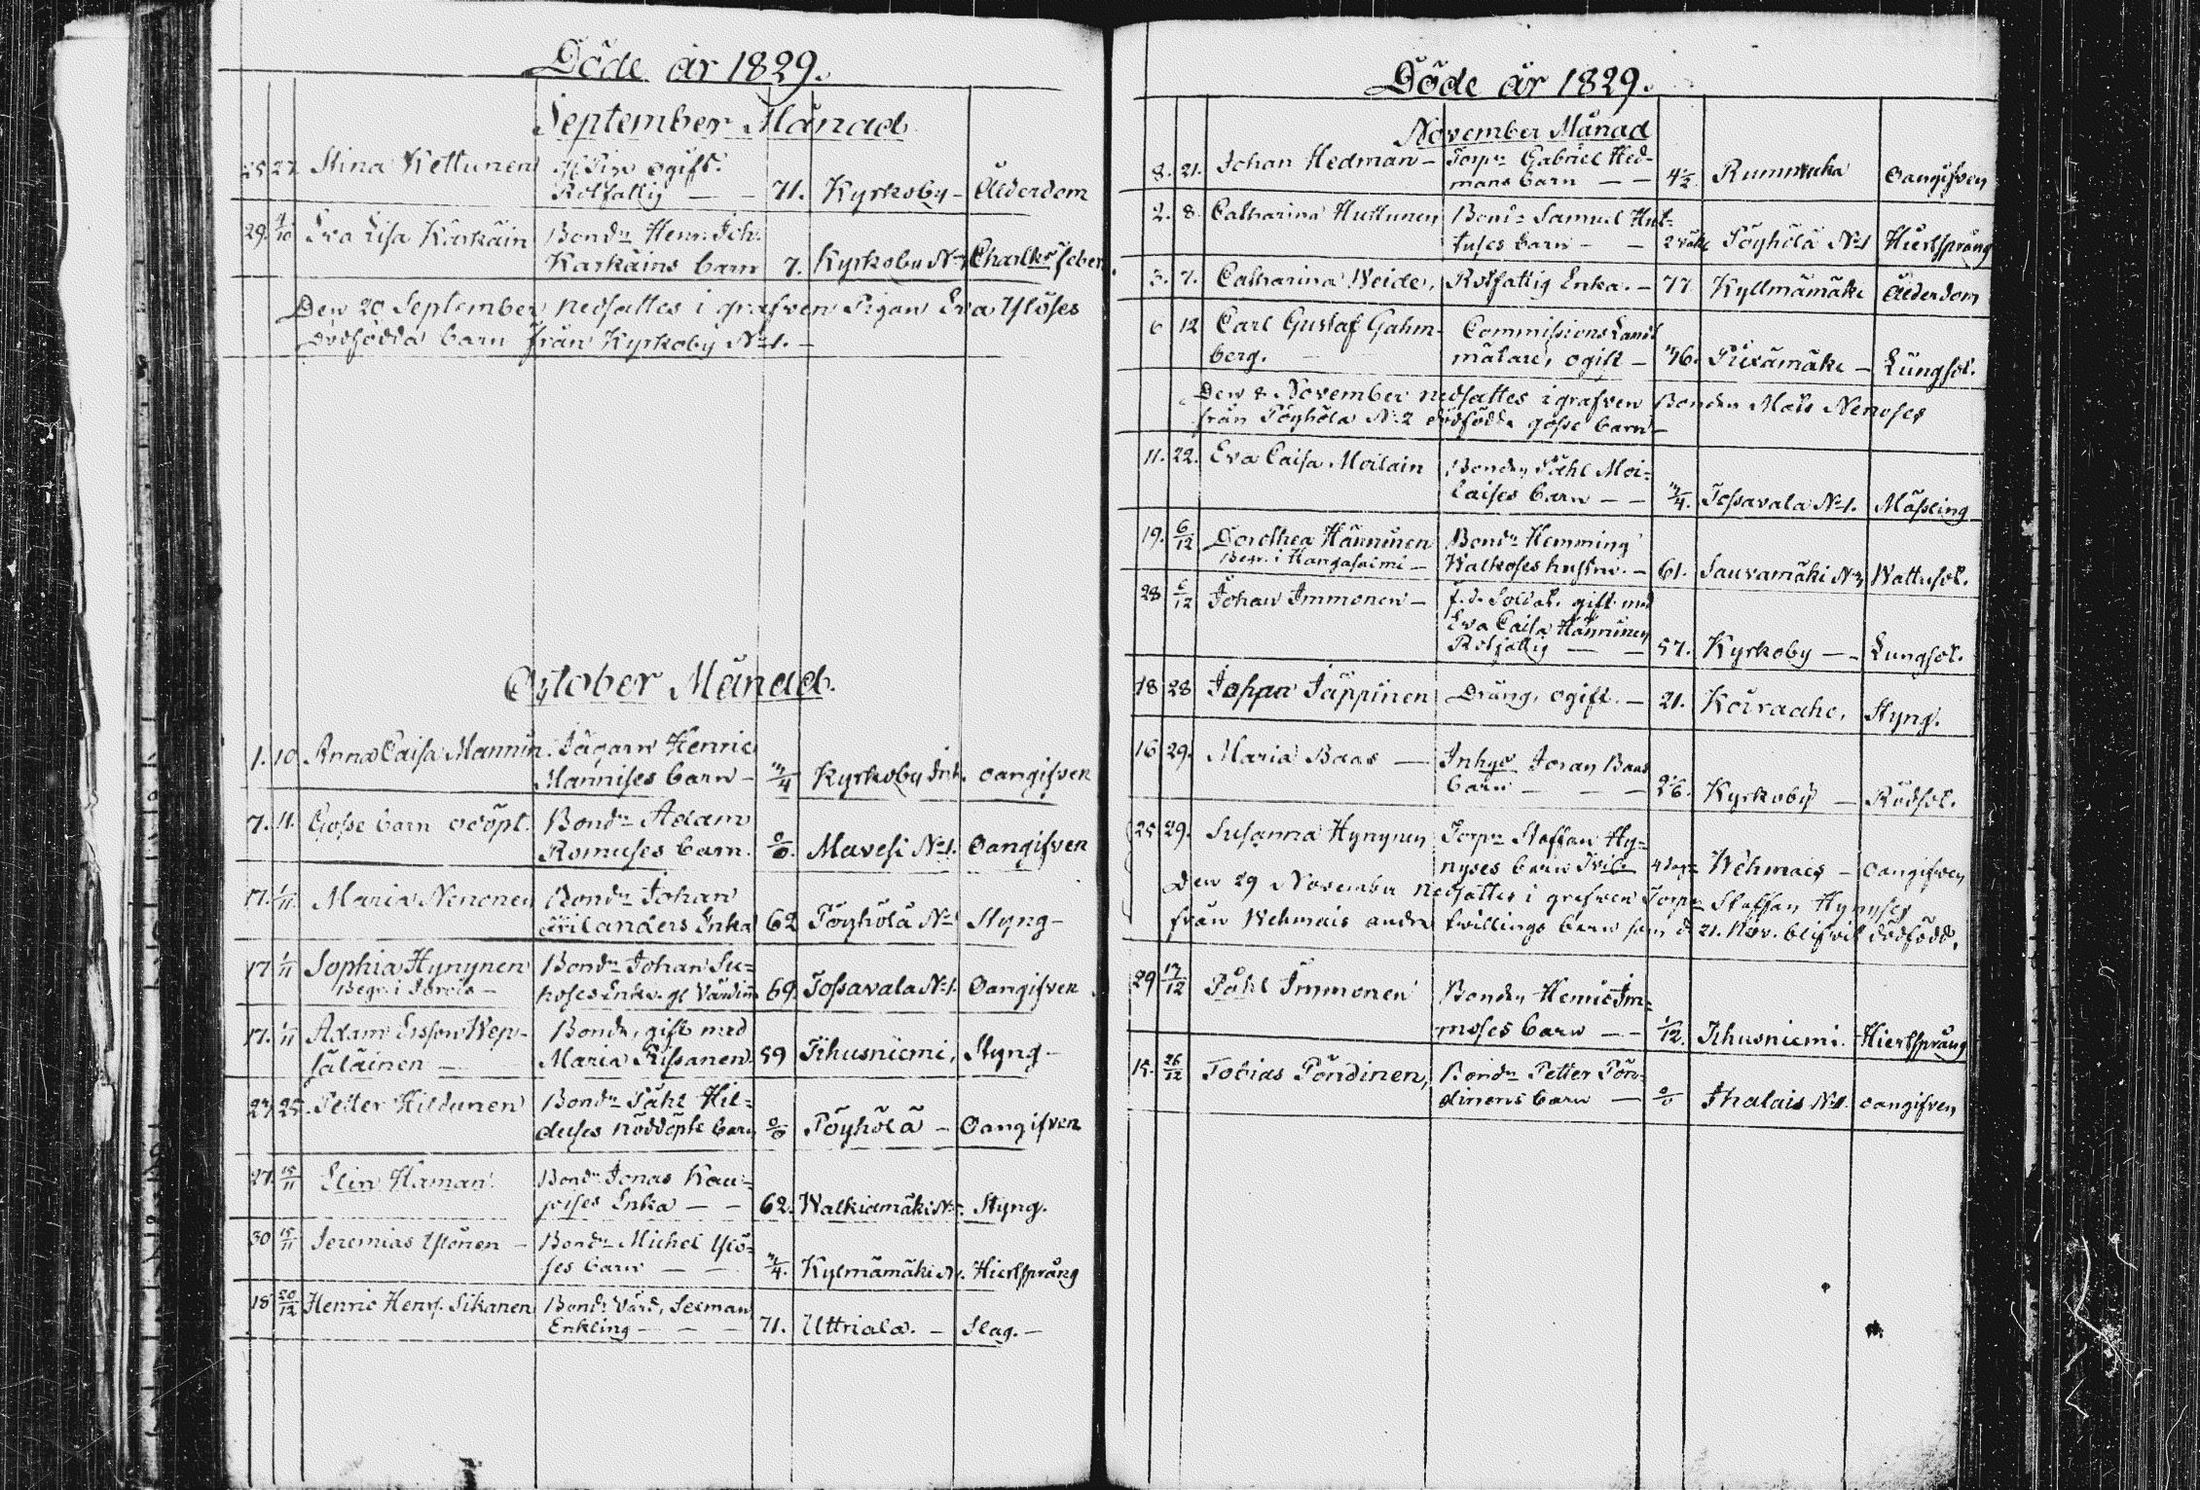 Döde år 1829.
September Månad
25 27 Stina Kettunen
ogift.
Rotfattig — — 71. Kyrkoby - Ålderdom
29. 4/10 Eva Lisa Karkain Bondn Henr. Joh.
Karkains barn 7. Kyrkoby No Charlk? feber
Den 20 September nedsattes i grafven Pigan Eva Ylöses
dödfödda barn från Kyrkoby No 1. —
October Månad.
1. 10. Anna Caisa Mannin. Jägarn Henric
Mannises barn - Kyrkoby Inh. oangifven
7. 11. Gosse barn odöpt. Bondn Adam
Romuses barn. 0/0. Mavesi No 1. Oangifven
17. 1/11 Maria Nenonen Bondn Johan
Enka 62 Pöyhölä No Styng -
17 1/11 Sophia Hynynen Bondn Johan Su=
Begr. i — koses Enka. gl Värdin 69. Tossavala No 1. Oangifven
17. 1/11 Adam Ersson Wep- Bondn, gift med
säläinen — Maria Rissanen 59 Kihusniemi, Styng -
24. 25. Petter Hildunen Bondn Påhl Hil=
duses nöddöpte barn 0/0 Pöyhölä - Oangifven
27. 15/11 Elin Haman Bondn Jonas Kau=
poises Enka — — 62. Walkiamäki No Styng.
30 15/11 Jeremias Ylönen - Bondn Michel Ylö=
ses barn — — Kylmämäki No. Hiertsprång
18 20/12 Henric Henrs. Sikanen Bondn Värd, Seeman
Enkling — — — 71. Uttriala. - Slag. -
Döde år 1829.
November Månad
8. 21. Johan Hedman - Torpn Gabriel Hed-
mans barn — — 4½ Rummuka oangifven
2. 8. Catharina Huttunen Bondn Samuel Hut=
tuses barn - — Pöyhölä No 1 Hiertsprång
3. 7. Catharina Weide, Rotfattig Enka. - 77 Kyllmämäki Ålderdom
6 12 Carl Gustaf Gahm- Commissions Landt
berg. mätare, ogift - 76. - Lungsot.
Den 8 November nedsattes i grafven Bonden Mats Nenoses
från Pöyhölä No 2 dödfödda gosse barn -
11. 22. Eva Caisa Moilain Bonden Påhl Moi=
laises barn — — Tossavala No 1. Mässling
19. 6/12 Dorothea Hänninen Bondn Hemming
Begr. i Hangasalmi - Walkoses hustru. - 61. Sauvamäki No 3 Wattusot.
28 6/12 Johan Immonen - f.d. Soldat. gift med
Eva Caisa Hänninen
Rotfattig — — 57. Kyrkoby — - Lungsot.
18 28 Johan Jäppinen Dräng, ogift. — 21. Koiraaho, Styng.
16 29. Maria Baas — Inhys Joran Baas
barn — — — Kyrkoby — Rödsot.
25 29. Susanna Hynynen Torpn Staffan Hy=
nyses barn Tvil. 4 dagr Wehmais - oangifven
Den 29 November nedsattes i grafven Torpn Staffan Hynyses
från Wehmais andra tvillings barn som d 21. Nov. blifvit dödfödd,
29 13/12 Påhl Immonen Bonden Henric Im=
moses barn — - 1/12. Kihusniemi. Hiertsprång
15. 26/12 Tobias Pöndinen, Bondn Petter Pön=
dinens barn — 0/0 Ihalais No 1. oangifven